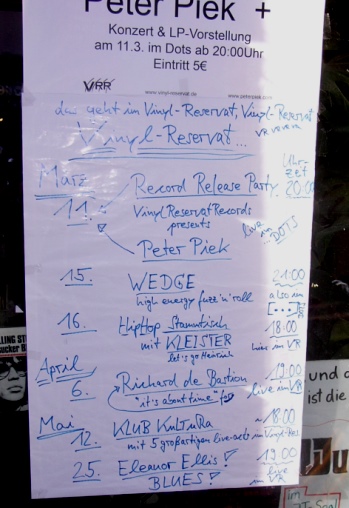 Peter Piek +
Konzert & LP-Vorstellung
am 11.3. im Dots ab 20:00Uhr
Eintritt 5€
VRR
www.vinyl-reservat.de www.peterpiek.com
das geht im Vinyl-Reservat, Vinyl-Reservat
Vinyl-Reservat...
März
Uhr-
zeit
11. Record Release Party 20:00
VinylReservatRecords
presents
Live im DOTS
Peter Piek
15. WEDGE 21:00
high energy fuzz'n'roll also im
16. HipHop-Stammtisch 18:00
mit KLEISTER hier im VR
let's go Heinrich
April
6. Richard de Bastion 19:00
"it's about time" live im VR
Mai
12. KLUB KULTuRa ~18:00
mit 5 großartigen live-acts im Vinyl-Res.
25. Eleanor Ellis! 19:00
BLUES! live
VR
LLING ST
ucker B
und d
ist die
im